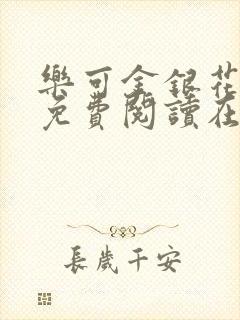 樂可金銀花
免費閱讀在
長歲千安